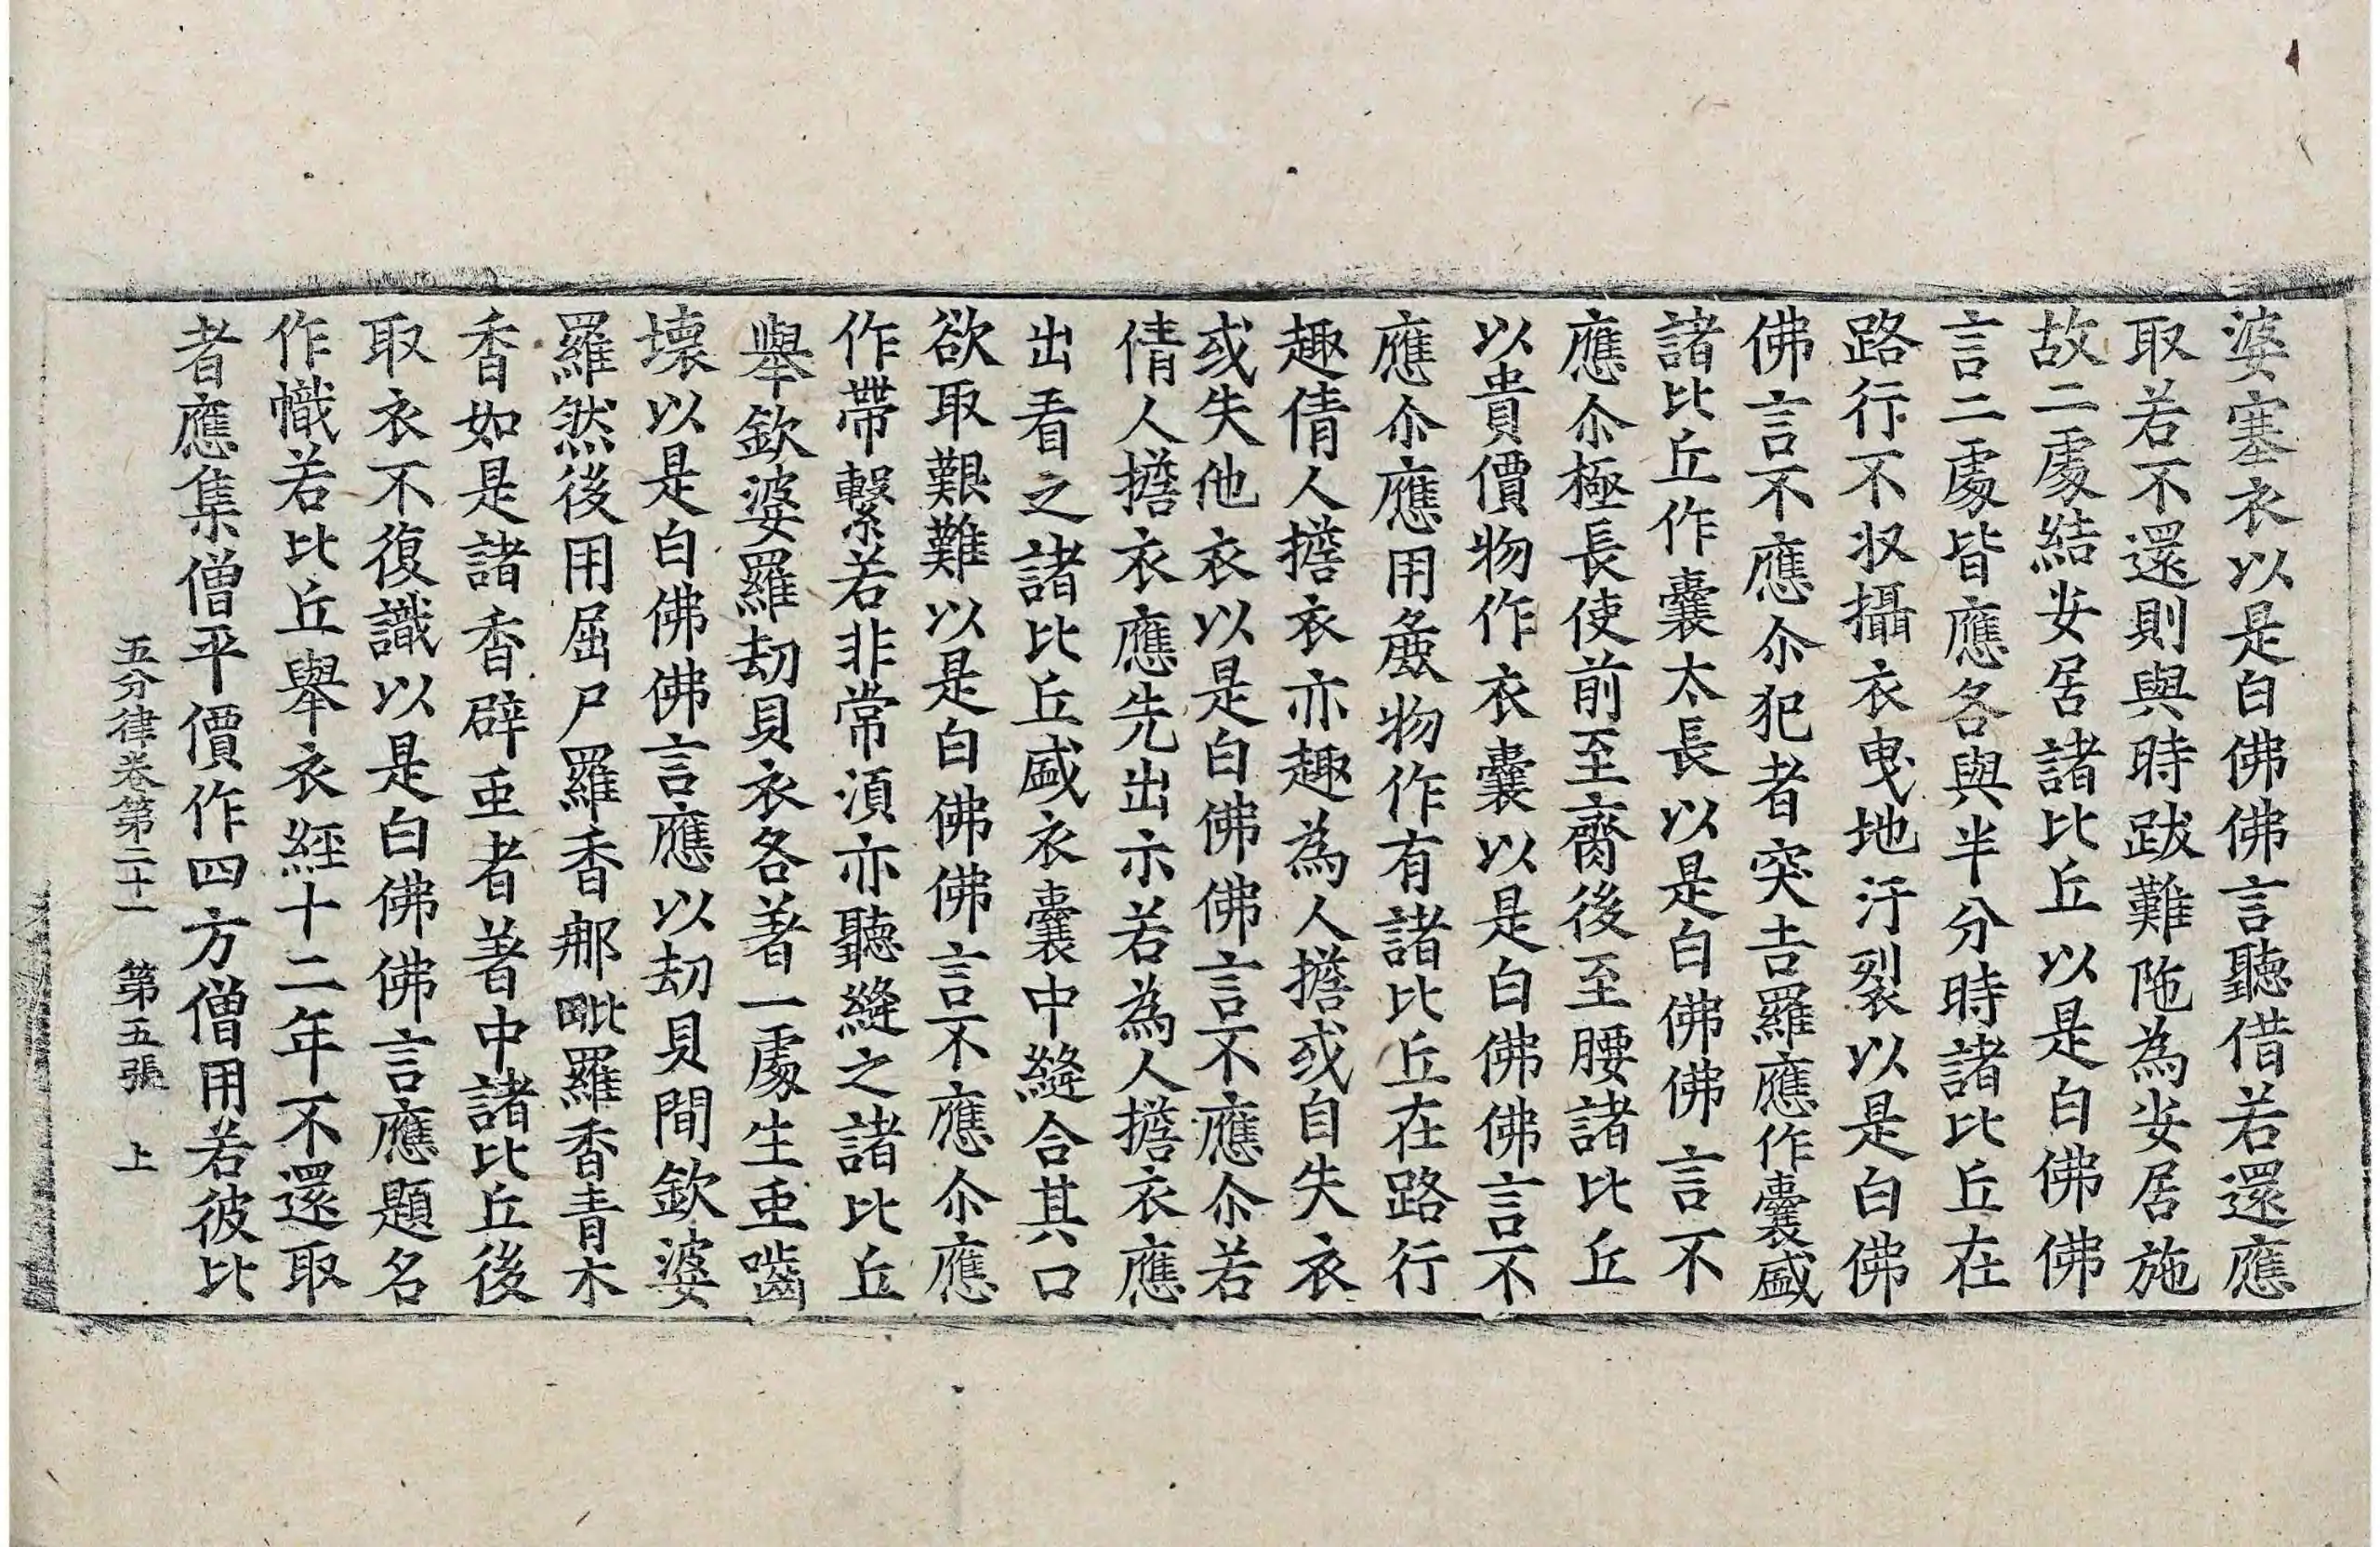 婆塞衣以是白佛佛言聽借若還應
取若不還則與時跋難陁為安居施
故二處結安居諸比丘以是白佛佛
言二處皆應各與半分時諸比丘在
路行不収攝衣曳地汙裂以是白佛
佛言不應尒犯者突吉羅應作囊盛
諸比丘作囊太長以是白佛佛言不
應尒極長使前至齊後至腰諸比丘
以貴價物作衣囊以是白佛佛言不
應尒應用麁物作有諸比丘在路行
趣倩人擔衣亦趣為人擔或自失衣
或失他衣以是白佛佛言不應尒若
倩人擔衣應先出示若為人擔衣應
出看之諸比丘盛衣囊中縫合其口
欲取艱難以是白佛佛言不應尒應
作帶繫若非常湏亦聽縫之諸比丘
舉欽婆羅刼貝衣各著一處生䖝嚙
壞以是白佛佛言應以刼貝間欽婆
羅然後用屈尸羅香那毗羅香青木
香如是諸香辟䖝者著中諸比丘後
取衣不復識以是白佛佛言應題名
作幟若比丘舉衣經十二年不還取
者應集僧平價作四方僧用若彼比
五分律卷第二十一 第五張 上